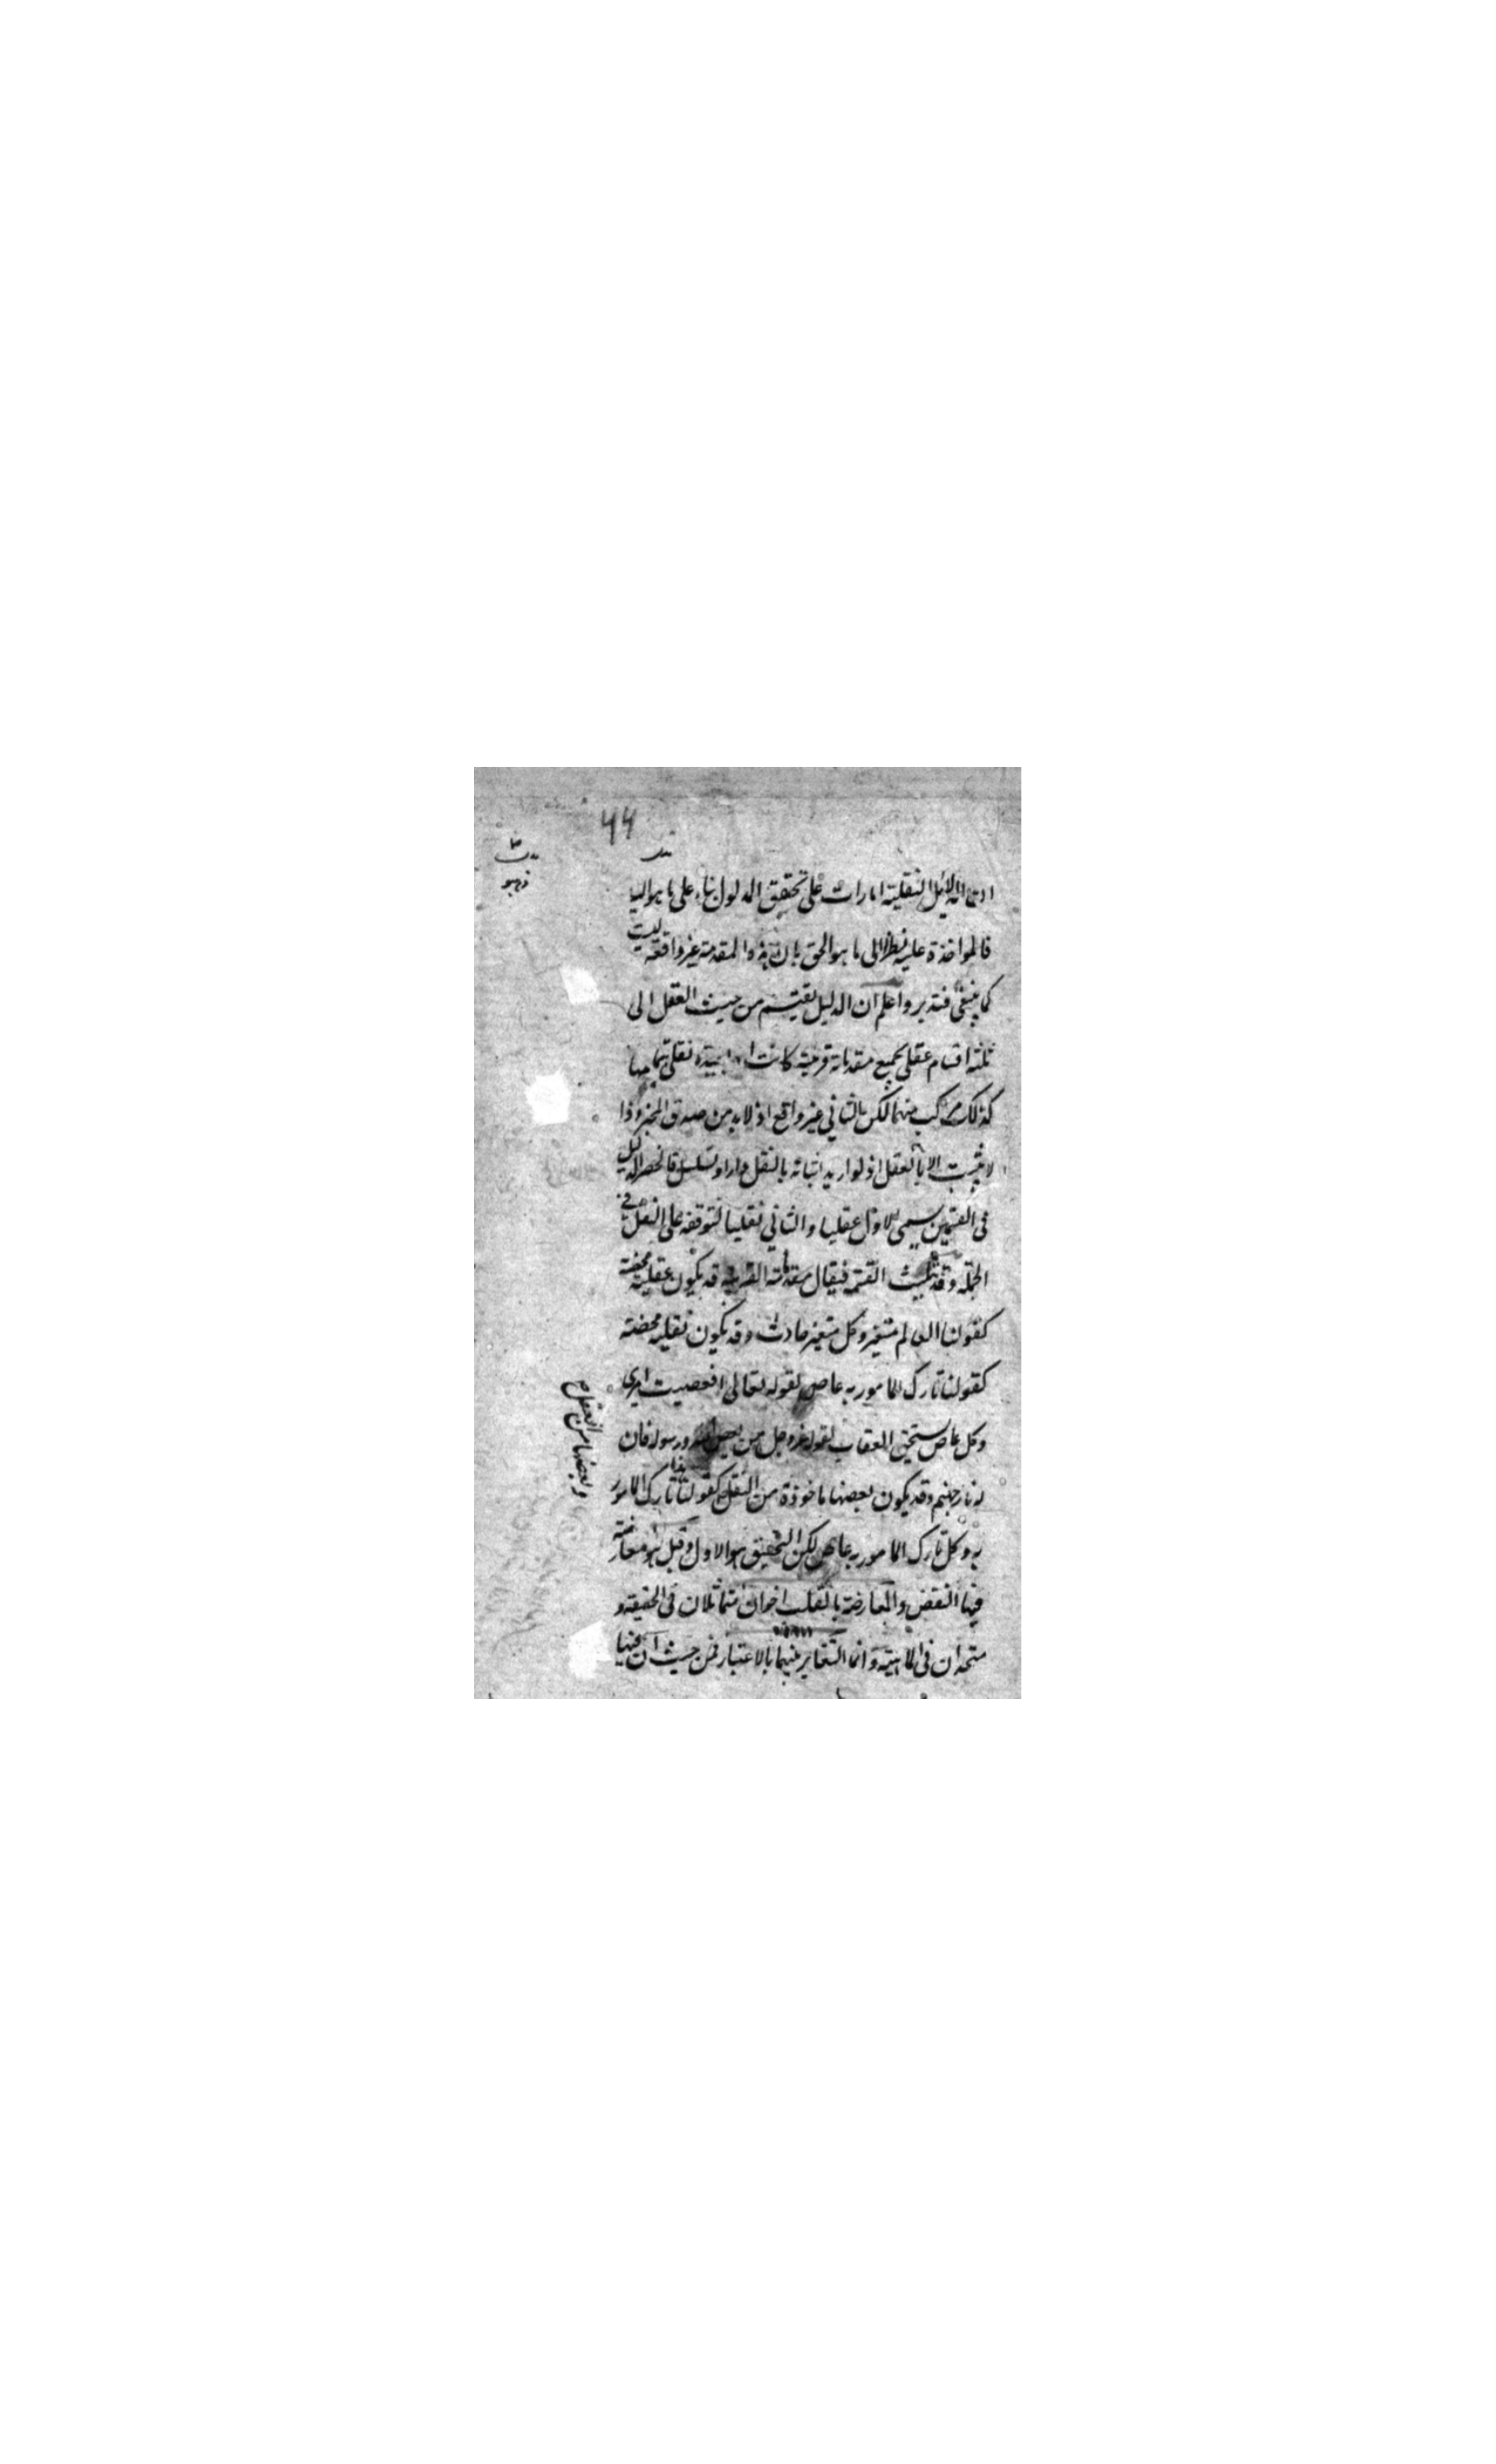 44
الدلائل النقلية امارات على تحقق المدلول بناء على ما هو اليا
فالمواخذة عليه نظرا الى ما هو الحق بان هذه المقدمة غير واقعة ليست
كما ينبغى فتدبر واعلم ان الدليل يقسم من حيث العقل الى
ثلثة اقسام عقلى بجميع مقدماته قريبة كانت او بعيدة نقلى بجميعها
كذلك مركب منهما لكن الثانى غير واقع اذ لا بد من صدق المخبر وذا
لا يثبت الا بالعقل اذ لو اريد اثباته بالنقل دار او تسلسل فانحصر الدليل
فى القسمين يسمى الاول عقليا والثانى نقليا لتوقفه على النقل فى
الجملة وقد تثلث القسمة فيقال مقدماته القريبة قد يكون عقلية محضة
كقولنا العالم متغير وكل متغير حادث وقد يكون نقلية محضة
كقولنا تارك المامور به عاص لقوله تعالى افعصيت امرى
وكل عاص يستحق العقاب لقوله عز وجل ومن يعص الله ورسوله فان
له نار جهنم وقد يكون بعضها ماخوذة من النقل كقولنا هذا تارك المامور
وبعضها من العقل صح
به وكل تارك المامور به عاص لكن التحقيق هو الاول وقيل هو معارضة
فيها النقض والمعارضة بالقلب اخوان متماثلان فى الحقيقة و
متحدان فى الماهية وانما التغاير بينهما بالاعتبار فمن حيث ان